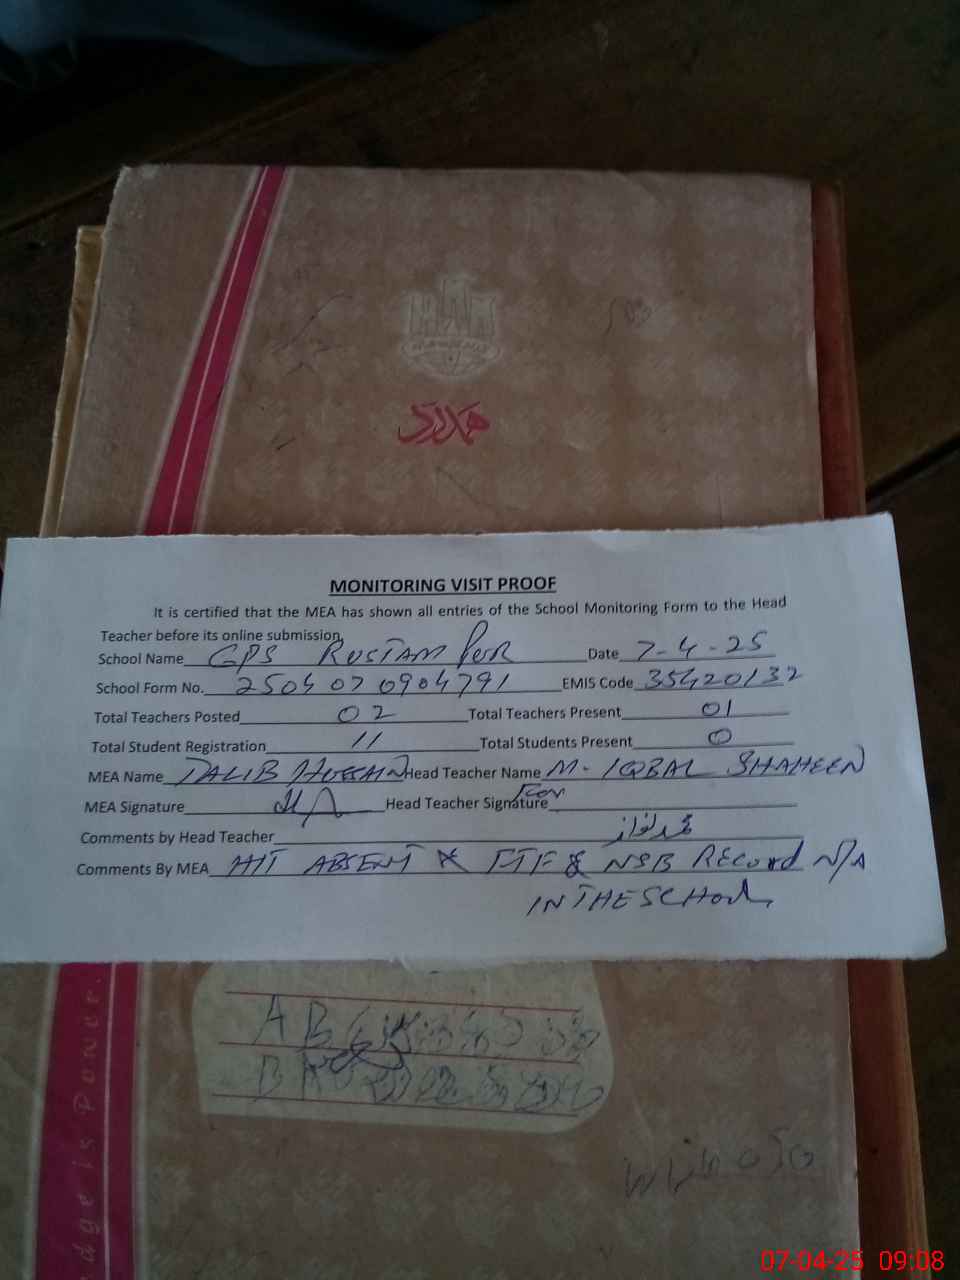 ہمدرد
MONITORING VISIT PROOF
It is certified that the MEA has shown all entries of the School Monitoring Form to the Head
Teacher before its online submission.
School Name GPS RUSTAM PUR Date 7-4-25
School Form No. 2504070904791 EMIS Code 35420132
Total Teachers Posted 02 Total Teachers Present 01
Total Student Registration 11 Total Students Present 0
MEA Name TALIB HUSSAIN Head Teacher Name M. IQBAL SHAHEEN
MEA Signature Head Teacher Signature For
Comments by Head Teacher
Comments By MEA H/T ABSENT & FTF & NSB Record N/A
IN THE SCHOOL
A B
B A
dge is Power.
07-04-25 09:08